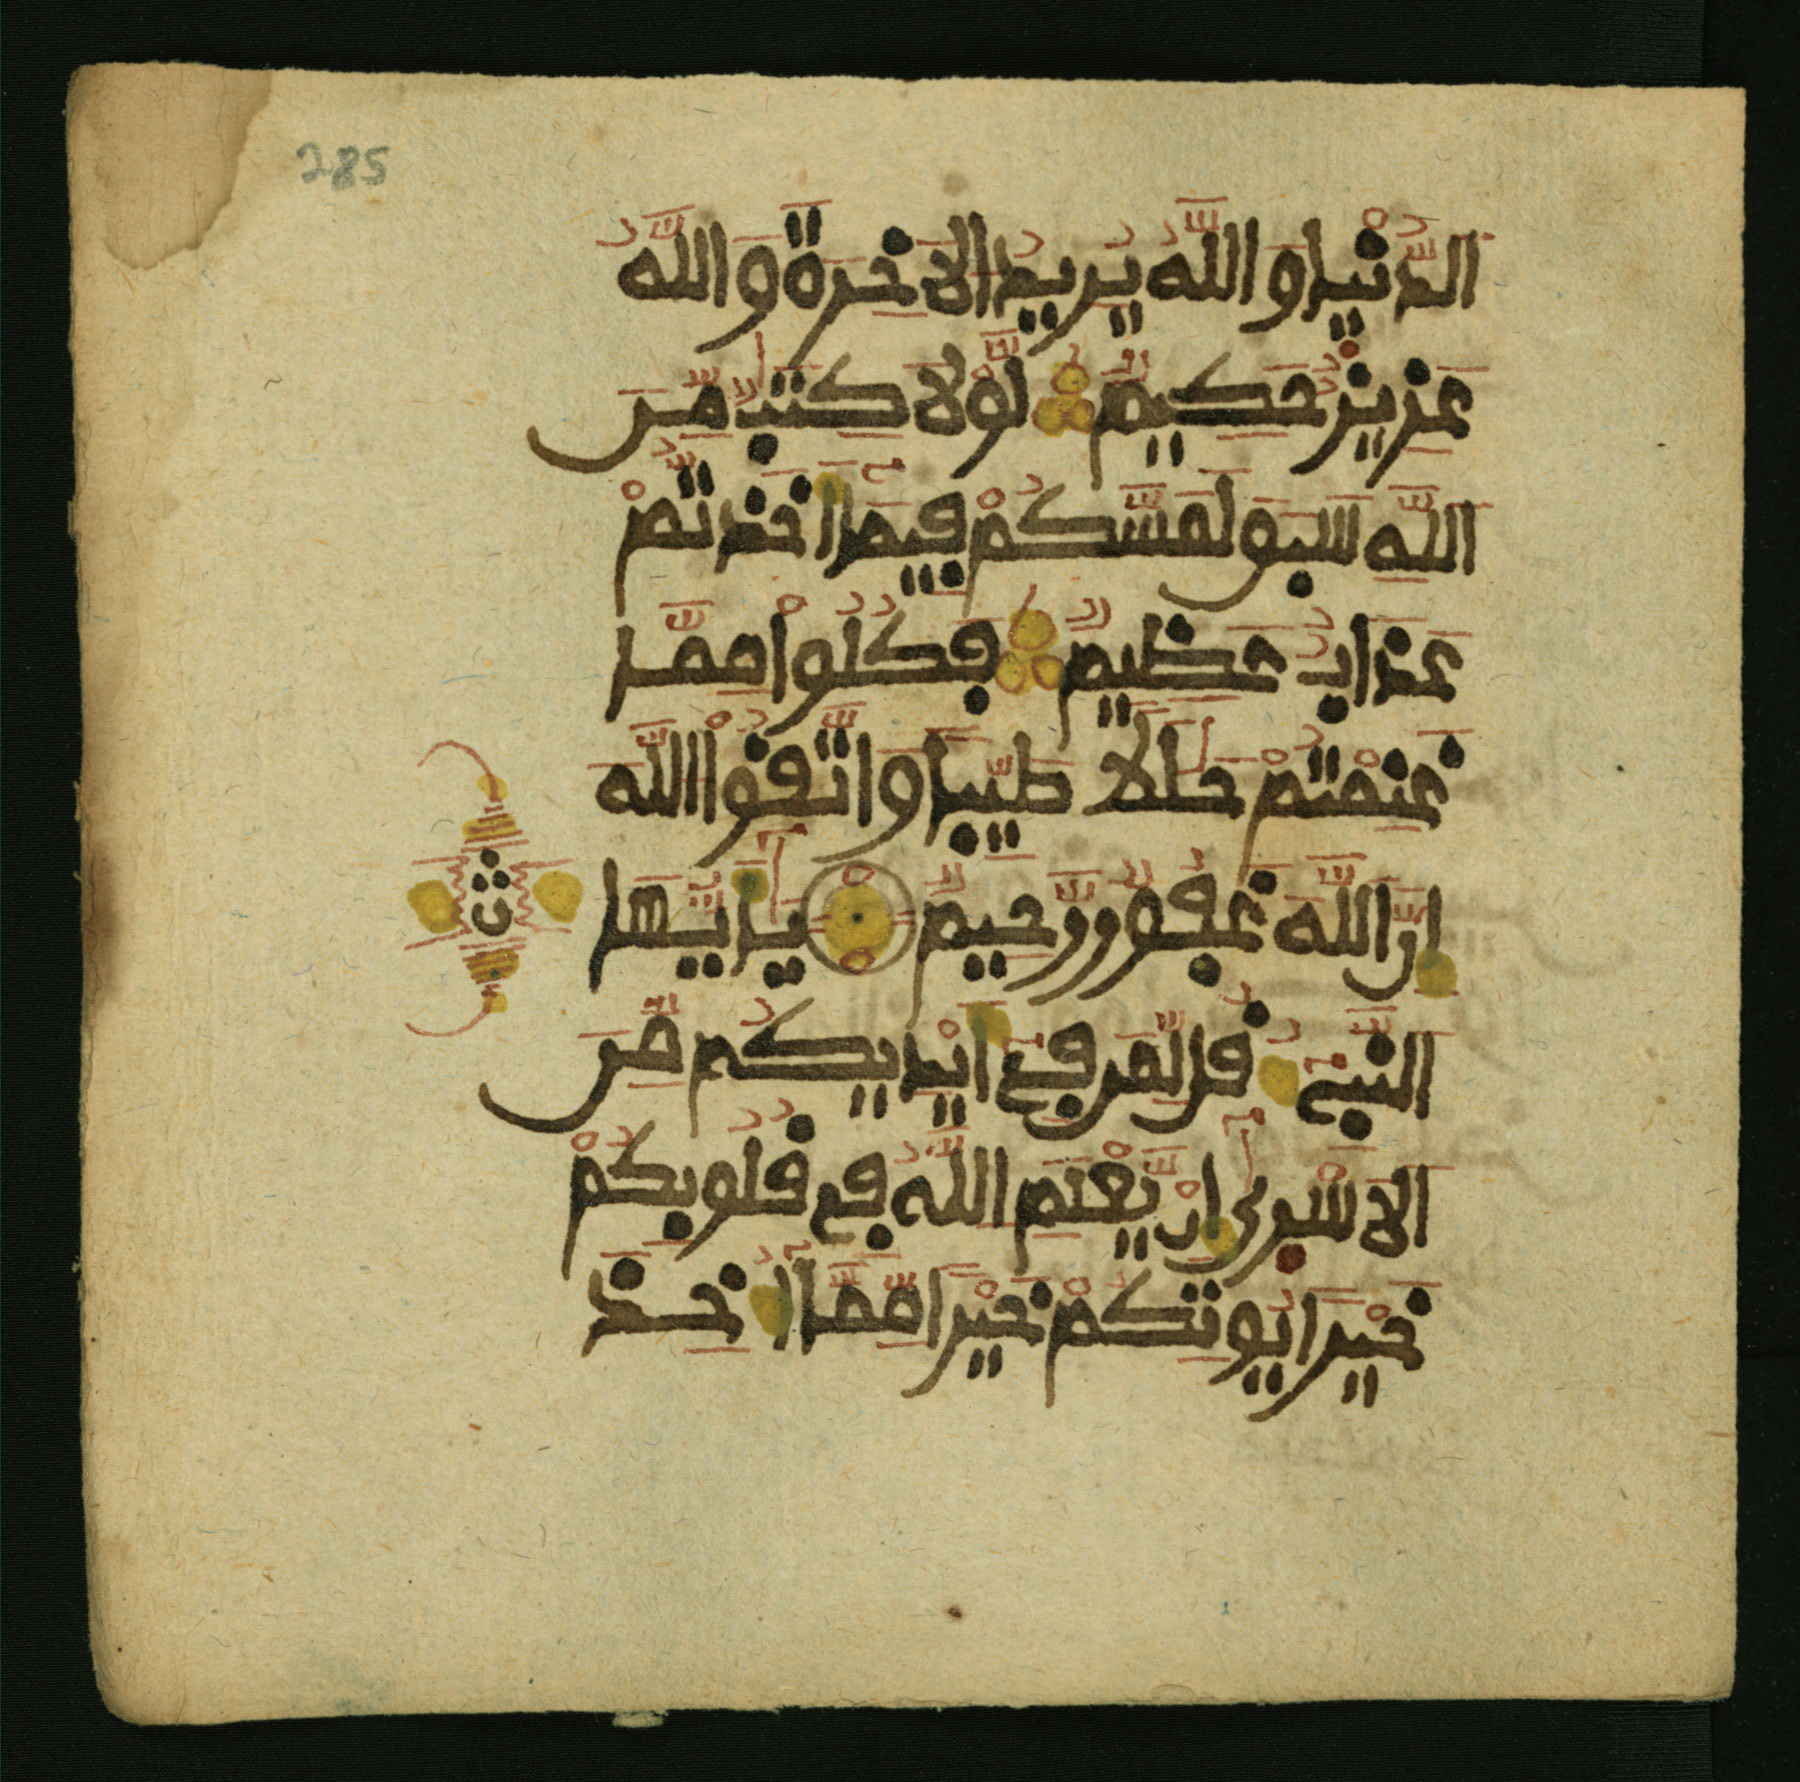 285
الدُّنْيَا وَاللَّهُ يُرِيدُ الَاخِرَةَ وَاللَّهُ
عَزِيزٌ حَكِيمٌ لَّوْلَا كِتَٰبٌ مِّنَ
اللَّهِ سَبَقَ لَمَسَّكُمْ فِيمَآ أَخَذتُّمْ
عَذَابٌ عَظِيمٌ فَكُلُوا۟ مِمَّا
غَنِمْتُمْ حَلَٰلًا طَيِّبًا وَاتَّقُوا۟ اللَّهَ
إِنَّ اللَّهَ غَفُورٌ رَّحِيمٌ يَٰٓأَيُّهَا
النَّبِىُٓٔ قُل لِّمَن فِىٓ أَيْدِيكُم مِّنَ
الَاسْر۪ىٰٓ إِنْ يَّعْلَمِ اللَّهُ فِى قُلُوبِكُمْ
خَيْرًا يُوتِكُمْ خَيْرًا مِّمَّآ أُخِذَ
ث
ن